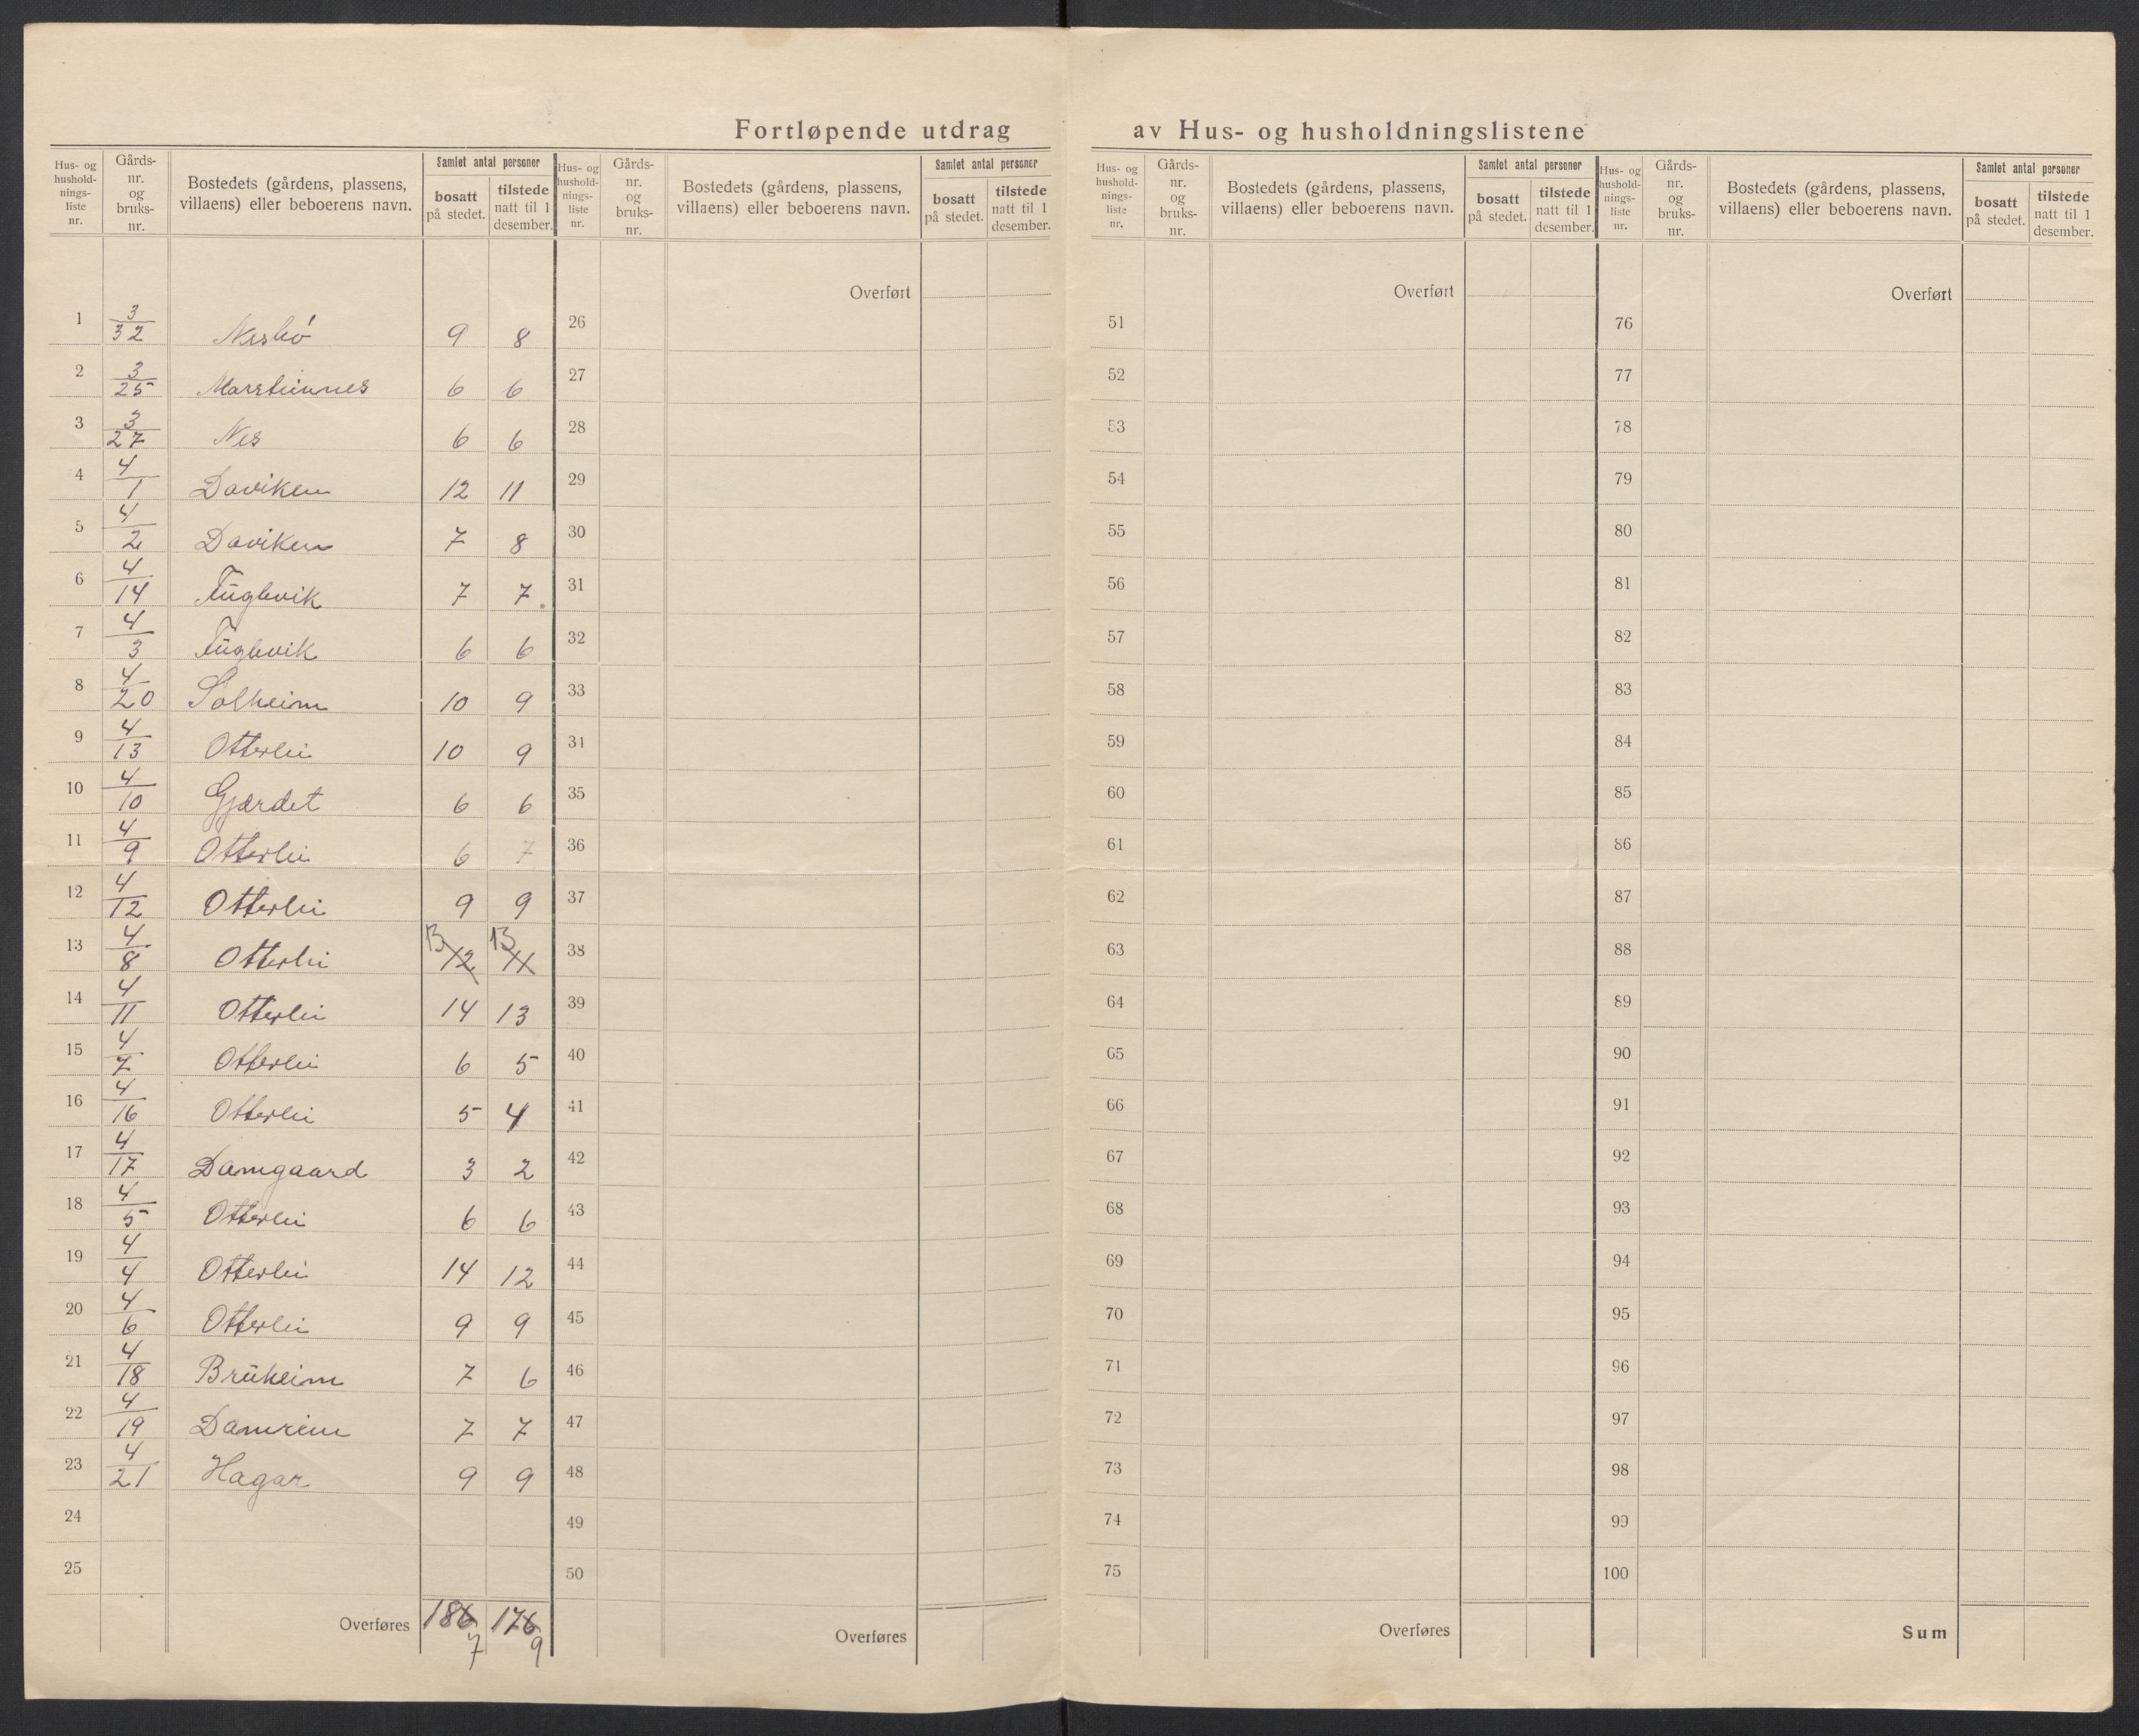 Fortløpende utdrag av Hus- og husholdningslistene
Hus- og husholdnings-liste nr. Gårds-nr. og bruks-nr. Bostedets (gårdens, plassens, villaens) eller beboerens navn. Samlet antal personer bosatt på stedet. tilstede natt til 1 desember.
Hus- og husholdnings-liste nr. Gårds-nr. og bruks-nr. Bostedets (gårdens, plassens, villaens) eller beboerens navn. Samlet antal personer bosatt på stedet. tilstede natt til 1 desember.
Hus- og husholdnings-liste nr. Gårds-nr. og bruks-nr. Bostedets (gårdens, plassens, villaens) eller beboerens navn. Samlet antal personer bosatt på stedet. tilstede natt til 1 desember.
Hus- og husholdnings-liste nr. Gårds-nr. og bruks-nr. Bostedets (gårdens, plassens, villaens) eller beboerens navn. Samlet antal personer bosatt på stedet. tilstede natt til 1 desember.
1 3/32 Nesbø 9 8
2 3/25 6 6
3 3/27 Nes 6 6
4 4/1 Daviken 12 11
5 4/2 Daviken 7 8
6 4/14 Fuglevik 7 7
7 4/3 Fuglevik 6 6
8 4/20 Solheim 10 9
9 4/13 Otterlei 10 9
10 4/10 Gjærdet 6 6
11 4/9 Otterlei 6 7
12 4/12 Otterlei 9 9
13 4/8 Otterlei 13 12 13 11
14 4/11 Otterlei 14 13
15 4/7 Otterlei 6 5
16 4/16 Otterlei 5 4
17 4/17 Damgaard 3 2
18 4/5 Otterlei 6 6
19 4/4 Otterlei 14 12
20 4/6 Otterlei 9 9
21 4/18 Bruheim 7 6
22 4/19 Damreim 7 7
23 4/21 Hagar 9 9
24
25
Overføres 186 7 176 9
Overført
26
27
28
29
30
31
32
33
34
35
36
37
38
39
40
41
42
43
44
45
46
47
48
49
50
Overføres
Overført
51
52
53
54
55
56
57
58
59
60
61
62
63
64
65
66
67
68
69
70
71
72
73
74
75
Overføres
Overført
76
77
78
79
80
81
82
83
84
85
86
87
88
89
90
91
92
93
94
95
96
97
98
99
100
Sum